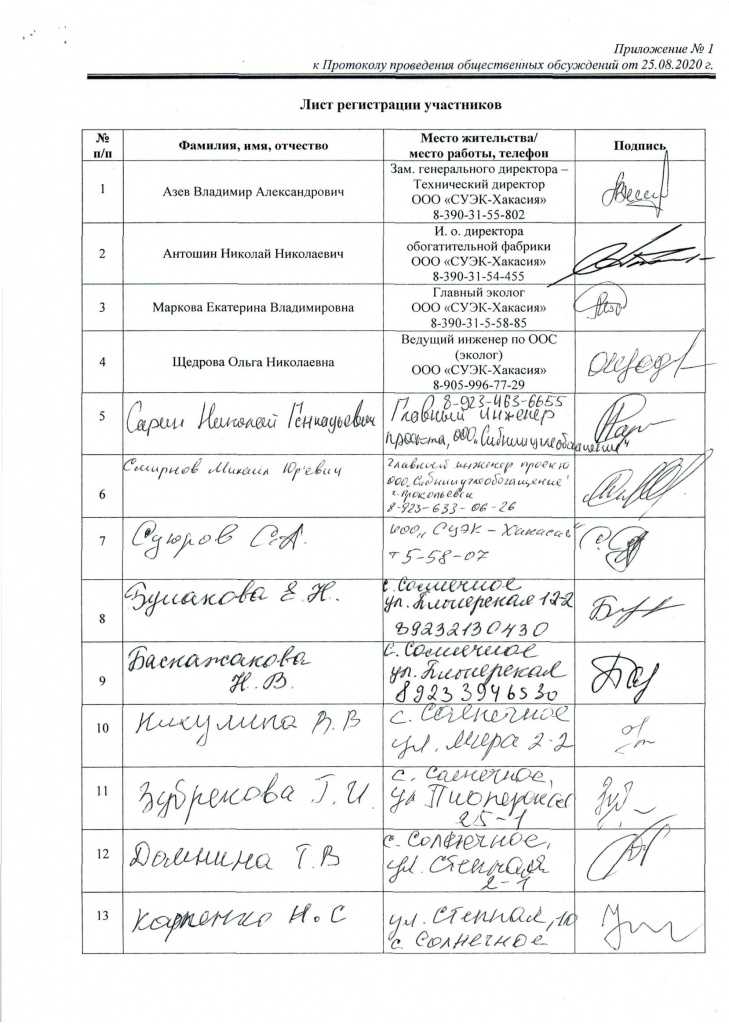 Приложение № 1
к Протоколу проведения общественных обсуждений от 25.08.2020 г.
Лист регистрации участников
№ п/п
Фамилия, имя, отчество
Место жительства/
место работы, телефон
Подпись
1
Азев Владимир Александрович
Зам. генерального директора –
Технический директор
ООО «СУЭК-Хакасия»
8-390-31-55-802
2
Антошин Николай Николаевич
И. о. директора
обогатительной фабрики
ООО «СУЭК-Хакасия»
8-390-31-54-455
3
Маркова Екатерина Владимировна
Главный эколог
ООО «СУЭК-Хакасия»
8-390-31-5-58-85
4
Щедрова Ольга Николаевна
Ведущий инженер по ООС
(эколог)
ООО «СУЭК-Хакасия»
8-905-996-77-29
5
Сарин Николай Геннадьевич
8-923-463-6655
Главный инженер
проекта, ООО „Сибнииуглеобогащение"
6
Смирнов Михаил Юрьевич
Главный инженер проекта
ООО „Сибнииуглеобогащение"
г. Прокопьевск
8-923-633-06-26
7
С.А.
ООО „СУЭК-Хакасия"
т 5-58-07
8
Е.Н.
с. Солнечное
ул. Пионерская 12-2
89232130430
9
Баскажакова
Н.В.
с. Солнечное
ул. Пионерская
89233946530
10
Никулина В.В
с. Солнечное
ул. Мира 2-2
11
Зубрекова Г.И.
с. Солнечное,
ул Пионерская
25-1
12
Домнина Т.В
с. Солнечное,
ул. Степная
2-1
13
Карпенко Н.С
ул. Степная, 10
с. Солнечное